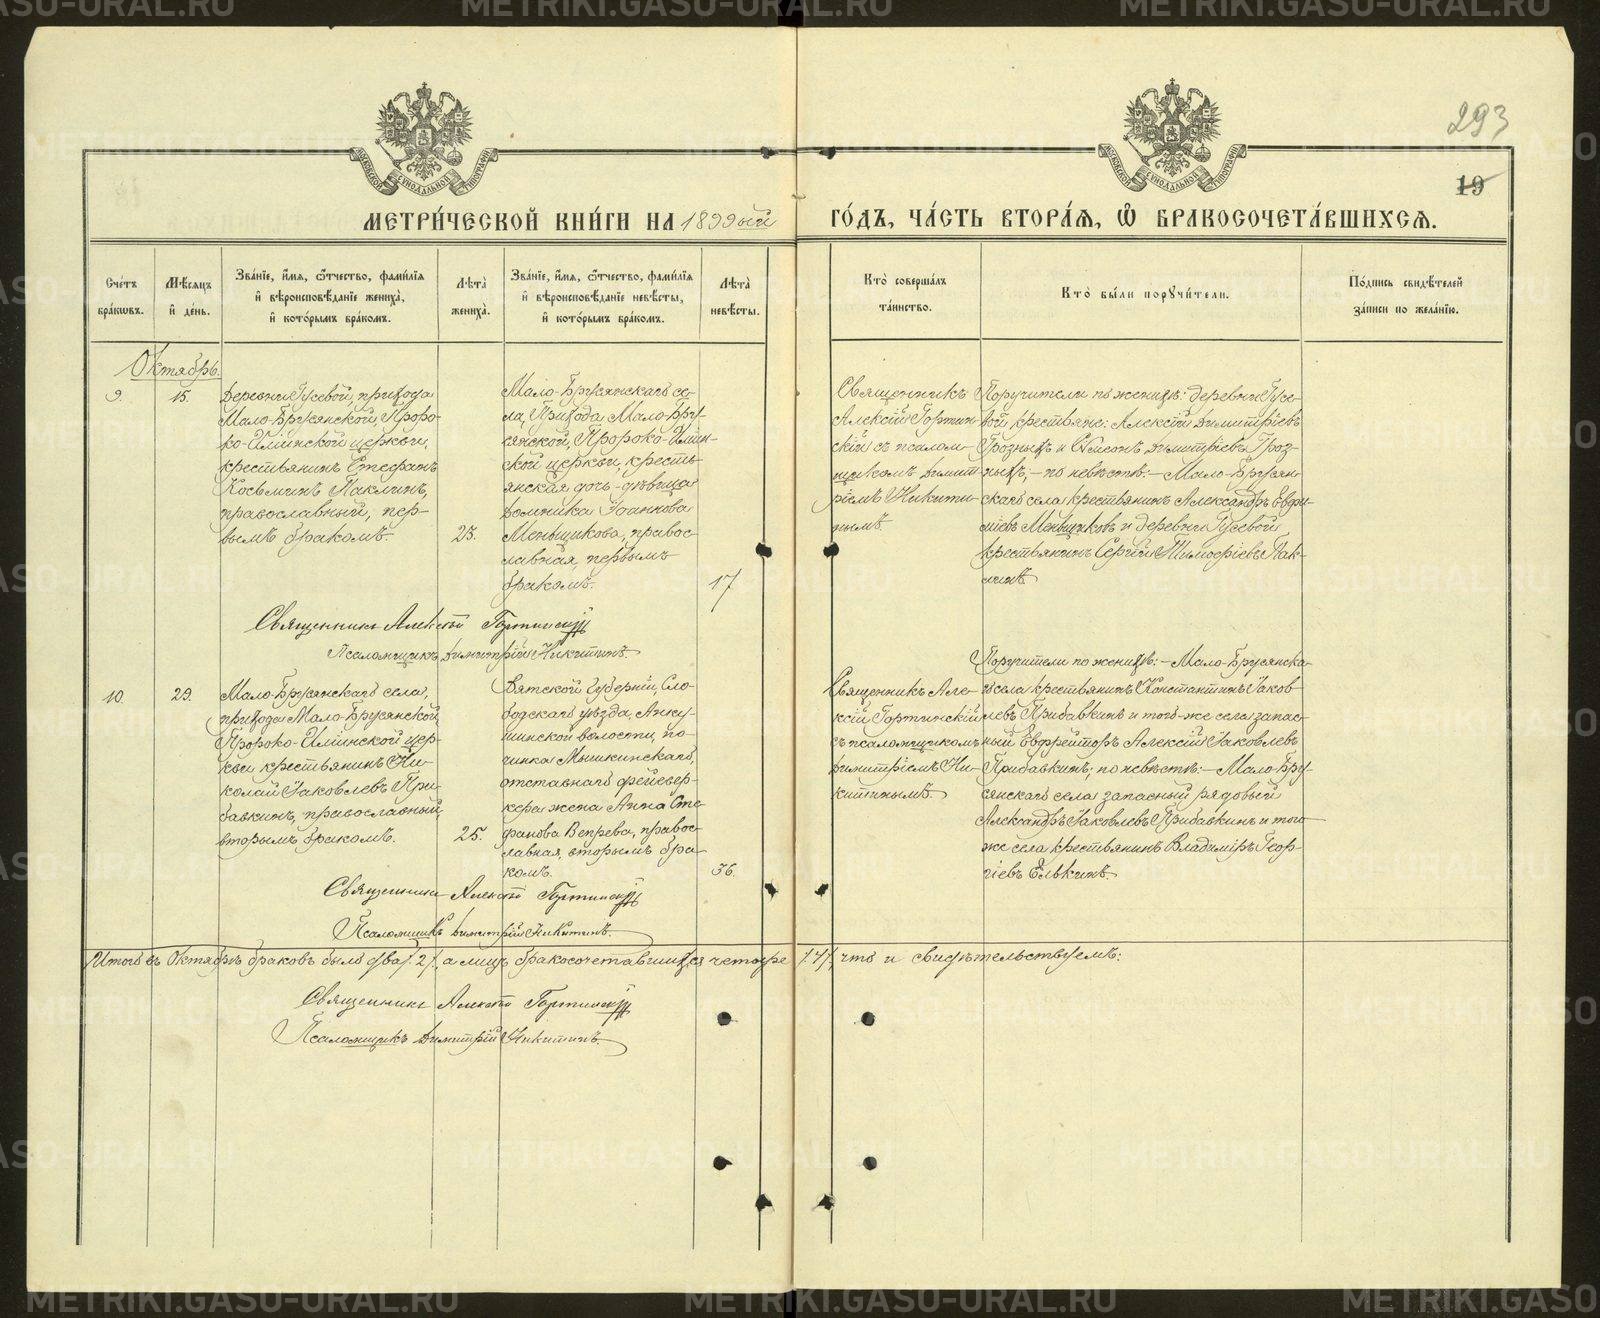 293
19
МЕТРИ́ЧЕСКОЙ КНИ́ГИ НА 1899ый ГО́ДЪ, ЧА́СТЬ ВТОРА́Я, Ѽ БРАКОСОЧЕТА́ВШИХСЯ.
Сче́тъ бра́ковъ.
Мѣ́сяцъ и҆ де́нь.
Зва́нїе, и҆́мя, ѻ҆́тчество, фами́лїя и҆ вѣроисповѣ́данїе жениха̀, и҆ кото́рымъ бра́комъ.
Лѣ́та жениха̀.
Зва́нїе, и҆́мя, ѻ҆́тчество, фами́лїя и҆ вѣроисповѣ́данїе невѣ́сты, и҆ кото́рымъ бра́комъ.
Лѣ́та невѣ́сты.
Кто̀ соверша́лъ та́инство.
Кто̀ бы́ли порꙋчи́тели.
По́дпись свидѣ́телей за́писи по жела́нїю.
Октябрь.
9.
15.
Деревни Гусевой, прихода
Мало-Брусянской, Проро-
ко-Илiинской церкви,
крестьянинъ Стефанъ
Косьминъ Паклинъ,
православный, пер-
вымъ бракомъ.
23.
Мало-Брусянскаго се-
ла, Прихода Мало-Бру-
сянской, Пророко-Илiин-
ской церкви, кресть-
янская дочь-дѣвица
Домника Iоаннова
Меньщикова, правос-
лавная, первымъ
бракомъ.
17
Священникъ
Алексiй Гортин-
скiй съ псалом-
щикомъ Димит-
рiемъ Никити-
нымъ
Поручители по женихѣ: деревни Гусе-
вой, крестьяне: Алексiй Димитрiевъ
Грозныхъ и Сѵмеонъ Димитрiевъ Гроз-
ныхъ, - по невѣстѣ: - Мало-Брусян-
скаго села крестьянинъ Александръ Евфи-
мiевъ Меньщиковъ и деревни Гусевой
крестьянинъ Сергiй Тимофiевъ Пак-
линъ
Священникъ Алексiй Гортинскiй
Псаломщикъ Димитрiй Никитинъ.
10.
29.
Мало-Брусянскаго села,
прихода Мало-Брусянской
Пророко-Илiинской цер-
кви крестьянинъ Ни-
колай Iаковлевъ При-
бавкинъ, православный,
вторымъ бракомъ.
25.
Вятской губернiи, Сло-
бодскаго уѣзда,
волости, по-
чинка Мышкинскаго,
отставнаго фейевер-
кера жена Анна Сте-
фанова Вепрева, правос-
лавная, вторымъ бра-
комъ.
36.
Священникъ Але-
ксiй Гортинскiй
съ псаломщикомъ
Димитрiемъ Ни-
китинымъ.
Поручители по женихѣ: - Мало-Брусянска-
го села крестьянинъ Константинъ Iаков-
левъ Прибавкинъ и того-же села запас-
ный Ефрейторъ Алексiй Iаковлевъ
Прибавкинъ; по невѣстѣ: - Мало-Бру-
сянскаго села запасный рядовый
Александръ Iаковлевъ Прибавкинъ и того
же села крестьянинъ Владимiръ Геор-
гiевъ Елькинъ.
Священникъ Алексiй Гортинскiй
Псаломщикъ Димитрiй Никитинъ.
Итого въ Октябрѣ браковъ было два /2/, а лицъ бракосочетавшихся четыре /4/, что и свидѣтельствуемъ:
Священникъ Алексiй Гортинскiй
Псаломщикъ Димитрiй Никитинъ.
METRIKI.GASO-URAL.RU